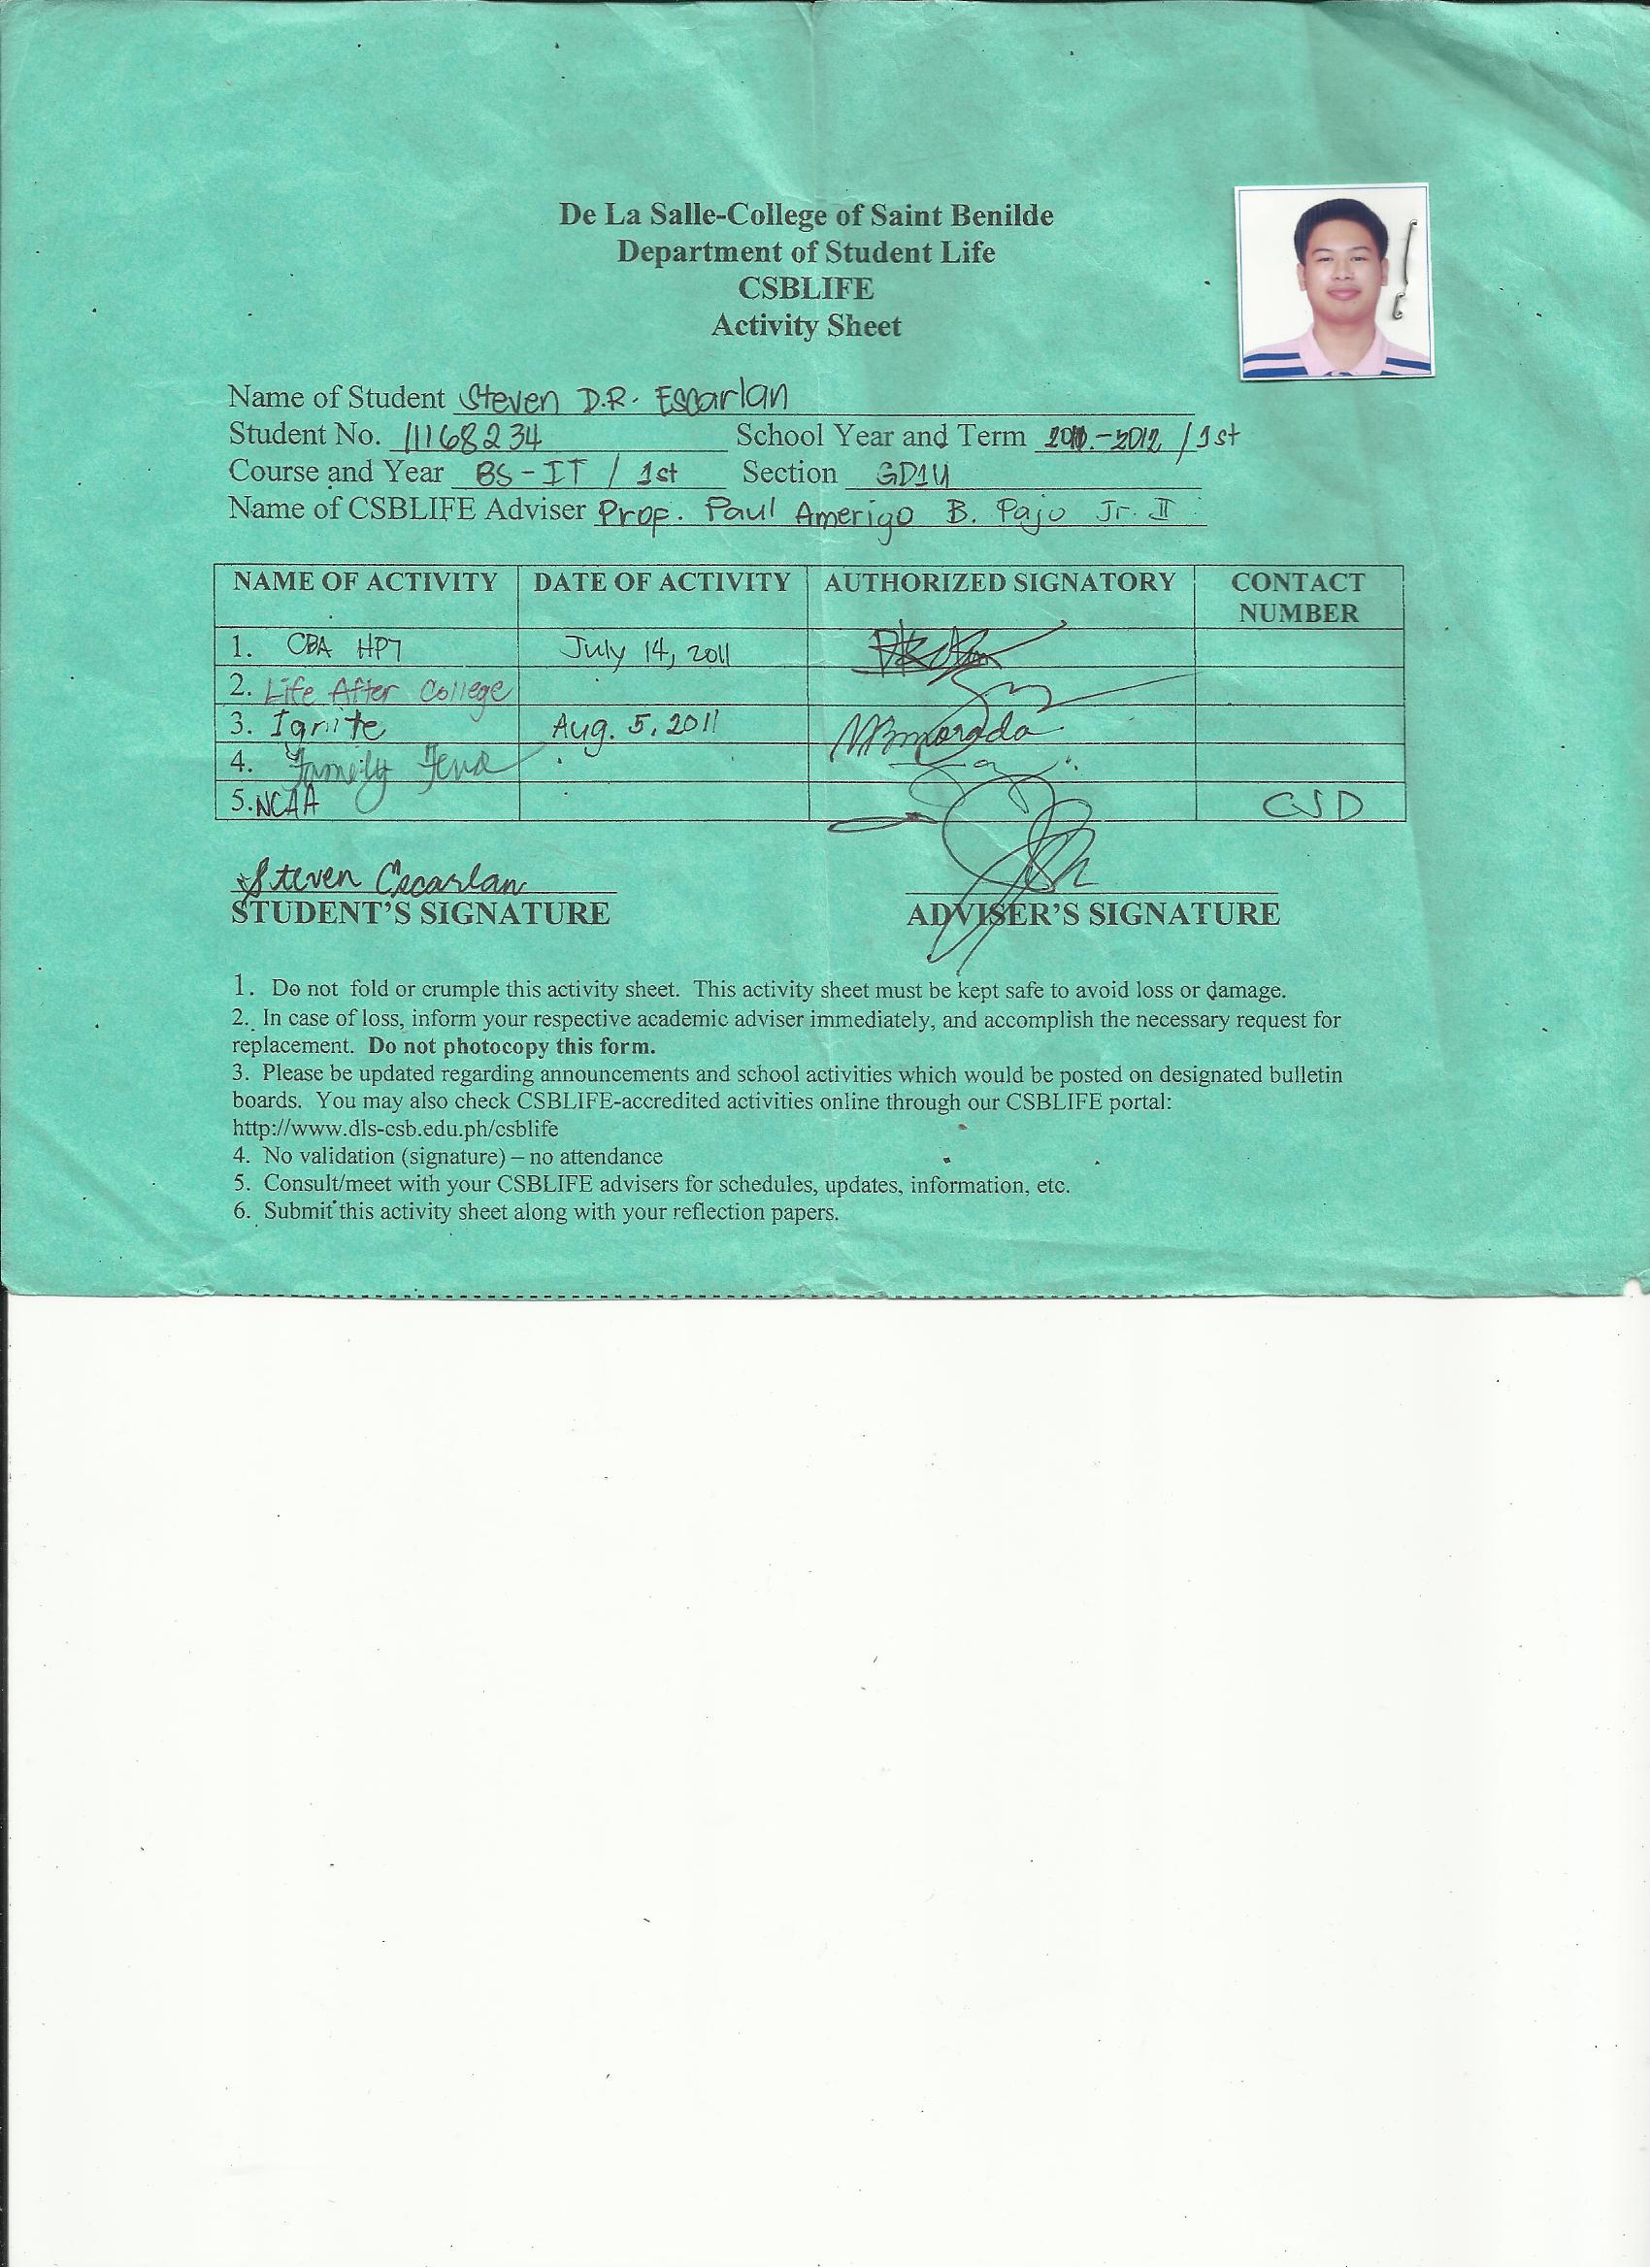 De La Salle-College of Saint Benilde
Department of Student Life
CSBLIFE
Activity Sheet
Name of Student Steven D.R. Escarlan
Student No. 11168234 School Year and Term -2012 / 1st
Course and Year BS-IT / 1st Section GD1U
Name of CSBLIFE Adviser Prof. Paul Amerigo B. Pajo Jr. II
NAME OF ACTIVITY DATE OF ACTIVITY AUTHORIZED SIGNATORY CONTACT NUMBER
1. CBA HP7 July 14, 2011
2. Life After College
3. Ignite Aug. 5, 2011
4. Family Feud
5. NCAA CSD
Steven Escarlan
STUDENT'S SIGNATURE ADVISER'S SIGNATURE
1. Do not fold or crumple this activity sheet. This activity sheet must be kept safe to avoid loss or damage.
2. In case of loss, inform your respective academic adviser immediately, and accomplish the necessary request for
replacement. Do not photocopy this form.
3. Please be updated regarding announcements and school activities which would be posted on designated bulletin
boards. You may also check CSBLIFE-accredited activities online through our CSBLIFE portal:
http://www.dls-csb.edu.ph/csblife
4. No validation (signature) – no attendance
5. Consult/meet with your CSBLIFE advisers for schedules, updates, information, etc.
6. Submit this activity sheet along with your reflection papers.